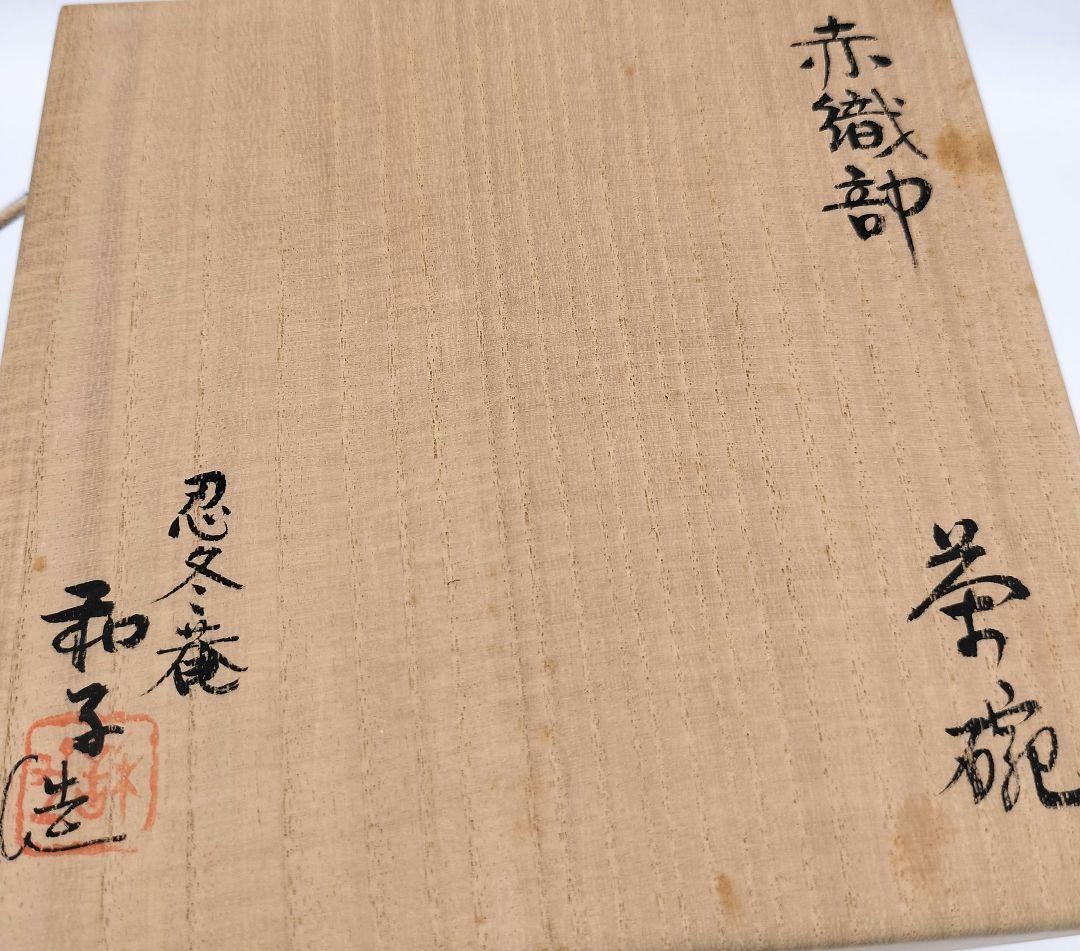 赤織部
茶碗
忍冬菴
和子造